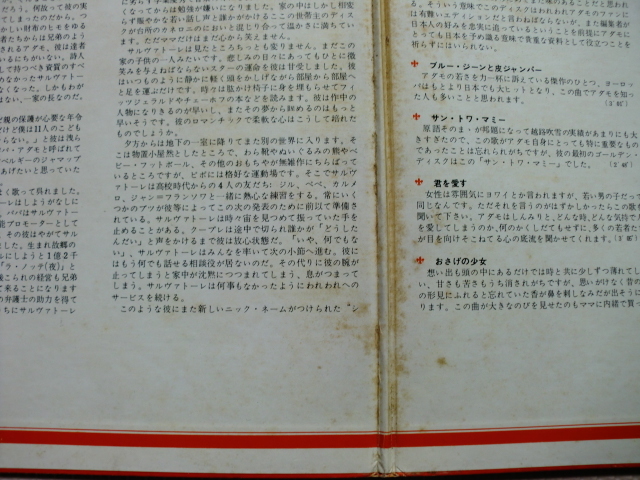 だろう。何故って彼の実
てしまったのだから。つ
かしい財布のヒモをゆる
者たちからは兄弟のよう
されるアダモ、彼は達者
いるにちがいない。詩人
して持つべき資質のすべ
めなかったサルヴァトー
なくなった。しかもわが
はない、一家の長なのだ。
ど親の保護が心要な年令
だけど僕は11人のこども
らない。」と彼は洩ら
ンバ・アダモと呼ばれて
ベルギーのジャマップ
あげたいと思っていた
く歌って呉れました。
ーレはしようがなしに
。パパはサルヴァトー
能プロモーターとして
、その彼はやがてサル
ました。生まれ故郷の
ルにしようと1億2千
「ラ・ノッテ(夜)」と
後こられの経営も兄弟
て来ることになります
の弁護士の助力を得て
ちにサルヴァトーレは
くなってからは勉強が嫌いになりました。家の中はしかし相変
らず賑やかな若い話し声と誰かがかけるこの世帯主のディス
クが台所のカネロニのにおいと混じり合って温かさに満ちてい
ます。ただママだけはまだ心から笑えません。
サルヴァトーレは見たところちっとも変りません。まだこの
家の子供の一人みたいです。悲しみの日々にあってもひとに微
笑みを与えねばならないスターの運命を彼は甘受しました。彼
はいつものように静かに軽く頭をかしげながら部屋から部屋へ
と足を運ぶだけです。時々は肱かけ椅子に身を埋もらせてフィ
ッツジェラルドやチェーホフの本などを読みます。彼は作中の
人物になりきるのが早いし、またその夢から醒めるのはもっと
早いそうです。彼のロマンチックで柔軟な心はこうして培れた
ものでしょうか。
夕方からは地下の一室に降りてまた別の世界に入ります。そ
こは物置小屋然としたところで、おもちゃやぬいぐるみの熊やベ
ビー・フットボール、その他のおもちゃが無雑作にちらばって
いるところですが、ビボには格好な運動場です。そこでサルヴ
ァトーレは高校時代からの4人の友だち：ジル、ペペ、カルメ
ロ、ジャン=フランソワと一緒に熱心な練習をする。常にいく
つかのブツが彼等によってこの次の発表のために前以て準備さ
れている。サルヴァトーレは時々宙を見つめて振っていた手を
止めることがある。クープレは途中で切られ誰かが「どうした
んだい」と声をかけるまで彼は放心状態だ。「いや、何でもな
い」、サルヴァトーレはみんなを率いて次の小節へ進む。彼に
はもう何でも話せる相談役が居ないのだ。その代りに彼の腕が
止ってしまうと家中が沈黙につつまれてしまう、息がつまって
しまう。サルヴァトーレは何事もなかったようにわれわれへの
サービスを続ける。
このような彼にまた新しいニック・ネームがつけられた "シ
る。そういう意味でこのディスクはわれわれアダモのファンに
は有難いエディションだと言わねばならないが、また編集者が
日本人の好みを忠実に追っているということを前提にアダモに
とっても日本を予め識る意味で貴重な資料として役立つことを
祈らずにはいられない。
ブルー・ジーンと皮ジャンパー
アダモの若さを力一杯に訴えている傑作のひとつ、ヨーロッ
パはもとより日本でも大ヒットとなり、この曲でアダモを知っ
た人も多いことと思われます。
サン・トワ・マミー
原語そのまゝが題になって越路吹雪の実績があまりにも大
きすぎたので、この歌がアダモ自身にとっても特に重要なもの
であったことは忘れられがちですが、彼の最初のゴールデン・
ディスクはこの「サン・トワ・マミー」でした。
君を愛す
女性は雰囲気にヨワイとか言われますが、若い男の子だって
同じなんです。ただそれを言うのがはずかしかったらこの歌を
聞いて下さい。アダモはしんみりと、どんな時、どんな気持で君
を愛してしまうのか、何のかくしだてもせずに、多くの若者たち
が目を向けそこねてる心の底流を聞かせてくれます。
おさげの少女
想い出も頭の中にあるだけでは時と共に少しずつ薄れてし
い、甘さも苦さもうち消されがちですが、思いがけなく昔の
の形見にふれると忘れていた香が鼻を刺しなみだが出そうに
ります。この曲が大きなのびを見せたのもママに内緒で買っ